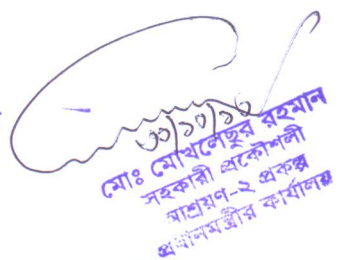 ৩০/১০/১০
মোঃ মোখলেছুর রহমান
সহকারী প্রকৌশলী
আশ্রয়ণ-২ প্রকল্প
প্রধানমন্ত্রীর কার্যালয়